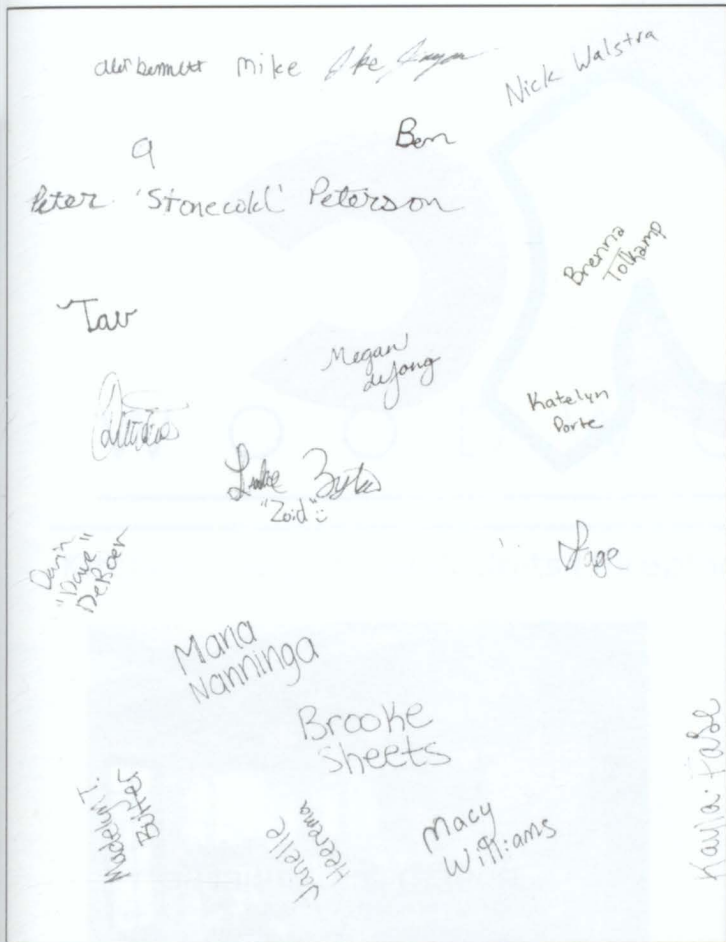 Mike
Nick Walstra
9
Ben
Peter 'Stonecold' Peterson
Brenna
Tolkamp
Tav
Megan
deJong
Katelyn
Porte
Luke
"Zoid"
"Dave"
DeBoer
Sage
Maria
Nanninga
Brooke
Sheets
Madelyn T.
Janelle
Heerema
Macy
Williams
Kayla